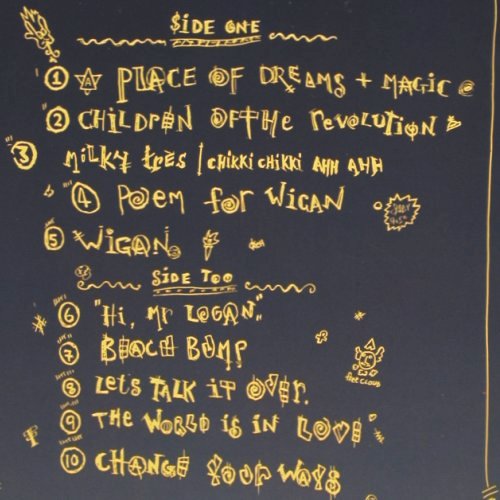 SIDE ONE
1 A PLACE OF DREAMS + MAGIC
2 CHILDREN OF THE REVOLUTION
3 MILKY tres | CHIKKI CHIKKI AHH AHH
4 POEM for WIGAN
5 WIGAN
SIDE TOO
6 "Hi, Mr LOGAN."
7 BEACH BUMP
8 LETS TALK iT OVER.
9 THE WORLD is iN LOVE
10 CHANGE YOUR WAYS